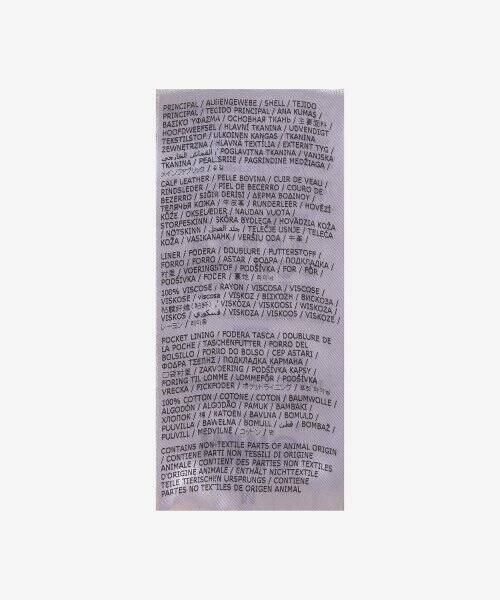 PRINCIPAL / AUßENGEWEBE / SHELL / TEJIDO
PRINCIPAL / TECIDO PRINCIPAL / ANA KUMAŞ /
ΒΑΣΙΚΟ ΥΦΑΣΜΑ / ОСНОВНАЯ ТКАНЬ / 主要面料 /
HOOFDWEEFSEL / HLAVNÍ TKANINA / UDVENDIGT
TEKSTILSTOF / ULKOINEN KANGAS / TKANINA
ZEWNĘTRZNA / HLAVNÁ TEXTÍLIA / EXTERNT TYG /
POGLAVITNA TKANINA / VANJSKA
TKANINA / PEALISRIIE / PAGRINDINĖ MEDŽIAGA /
メインファブリック /
CALF LEATHER / PELLE BOVINA / CUIR DE VEAU /
RINDSLEDER / PIEL DE BECERRO / COURO DE
BEZERRO / SIĞIR DERİSİ / ΔΕΡΜΑ ΒΟΔΙΝΟΥ /
ТЕЛЯЧЬЯ КОЖА / 牛皮革 / RUNDERLEER / HOVĚZÍ
KŮŽE / OKSELÆDER / NAUDAN VUOTA /
STORFESKINN / SKÓRA BYDLĘCA / HOVÄDZIA KOŽA
/ NÖTSKINN / جلد العجل / TELEČJE USNJE / TELEĆA
KOŽA / VASIKANAHK / VERŠIŲ ODA / 牛革 /
LINER / FODERA / DOUBLURE / FUTTERSTOFF /
FORRO / FORRO / ASTAR / ΦΟΔΡΑ / ПОДКЛАДКА /
衬里 / VOERINGSTOF / PODŠÍVKA / FOR / FÔR /
PODŠÍVKA / FODER / 裏地 /
100% VISCOSE / RAYON / VISCOSA / VISCOSE /
VISKOSE / viscosa / VISKOZ / ΒΙΣΚΟΖΗ / ВИСКОЗА /
VISKOOSI / WISKOZA /
VISKOS / فسكوزي / VISKOZA / VISKOOS / VISKOZĖ /
レーヨン /
POCKET LINING / FODERA TASCA / DOUBLURE DE
LA POCHE / TASCHENFUTTER / FORRO DEL
BOLSILLO / FORRO DO BOLSO / CEP ASTARI /
ΦΟΔΡΑ ΤΣΕΠΗΣ / ПОДКЛАДКА КАРМАНА /
口袋衬里 / ZAKVOERING / PODŠÍVKA KAPSY /
FORING TIL LOMME / LOMMEFÔR / PODŠÍVKA
VRECKA / FICKFODER / ポケットライニング /
100% COTTON / COTONE / COTON / BAUMWOLLE /
ALGODÓN / ALGODÃO / PAMUK / ΒΑΜΒΑΚΙ /
ХЛОПОК / 棉 / KATOEN / BAVLNA / BOMULD /
PUUVILLA / BAWEŁNA / BOMULL / قطن / BOMBAŽ /
PUUVILL / MEDVILNĖ / コットン / 면
CONTAINS NON-TEXTILE PARTS OF ANIMAL ORIGIN
/ CONTIENE PARTI NON TESSILI DI ORIGINE
ANIMALE / CONTIENT DES PARTIES NON TEXTILES
D'ORIGINE ANIMALE / ENTHÄLT NICHTTEXTILE
TEILE TIERISCHEN URSPRUNGS / CONTIENE
PARTES NO TEXTILES DE ORIGEN ANIMAL